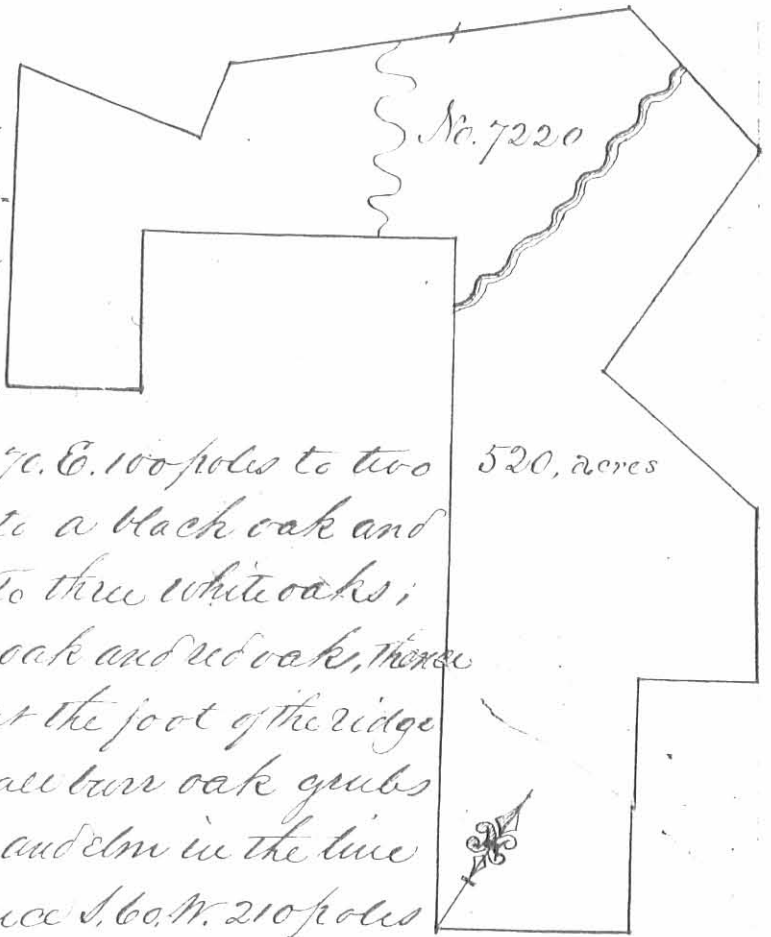 No. 7220
520, acres
70. E. 100 poles to two
to a black oak and
To three white oaks;
oak and red oaks, thence
at the foot of the ridge
burr oak grubs
and elm in the line
S. 60. W. 210 poles